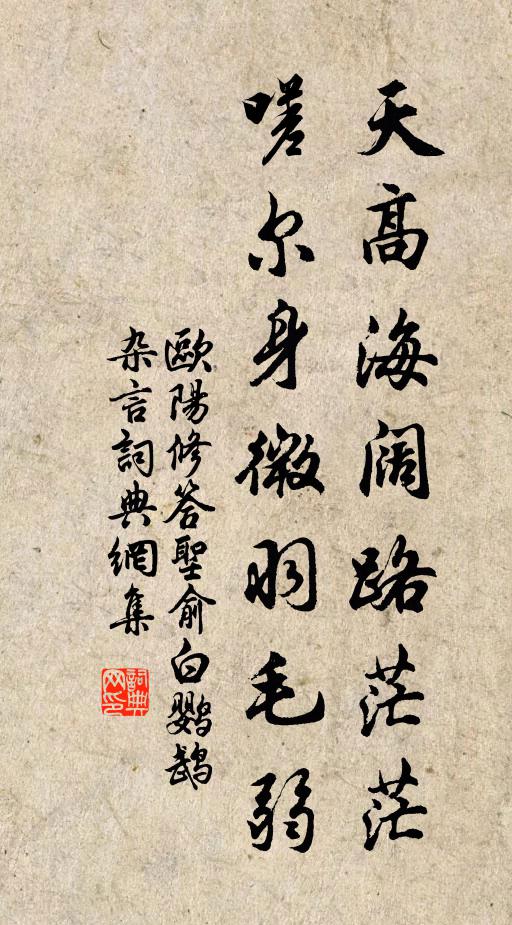 天高海阔路茫茫
嗟尔身微羽毛弱
歐陽修答聖俞白鹦鹉
杂言詞典網集
詞典
网印